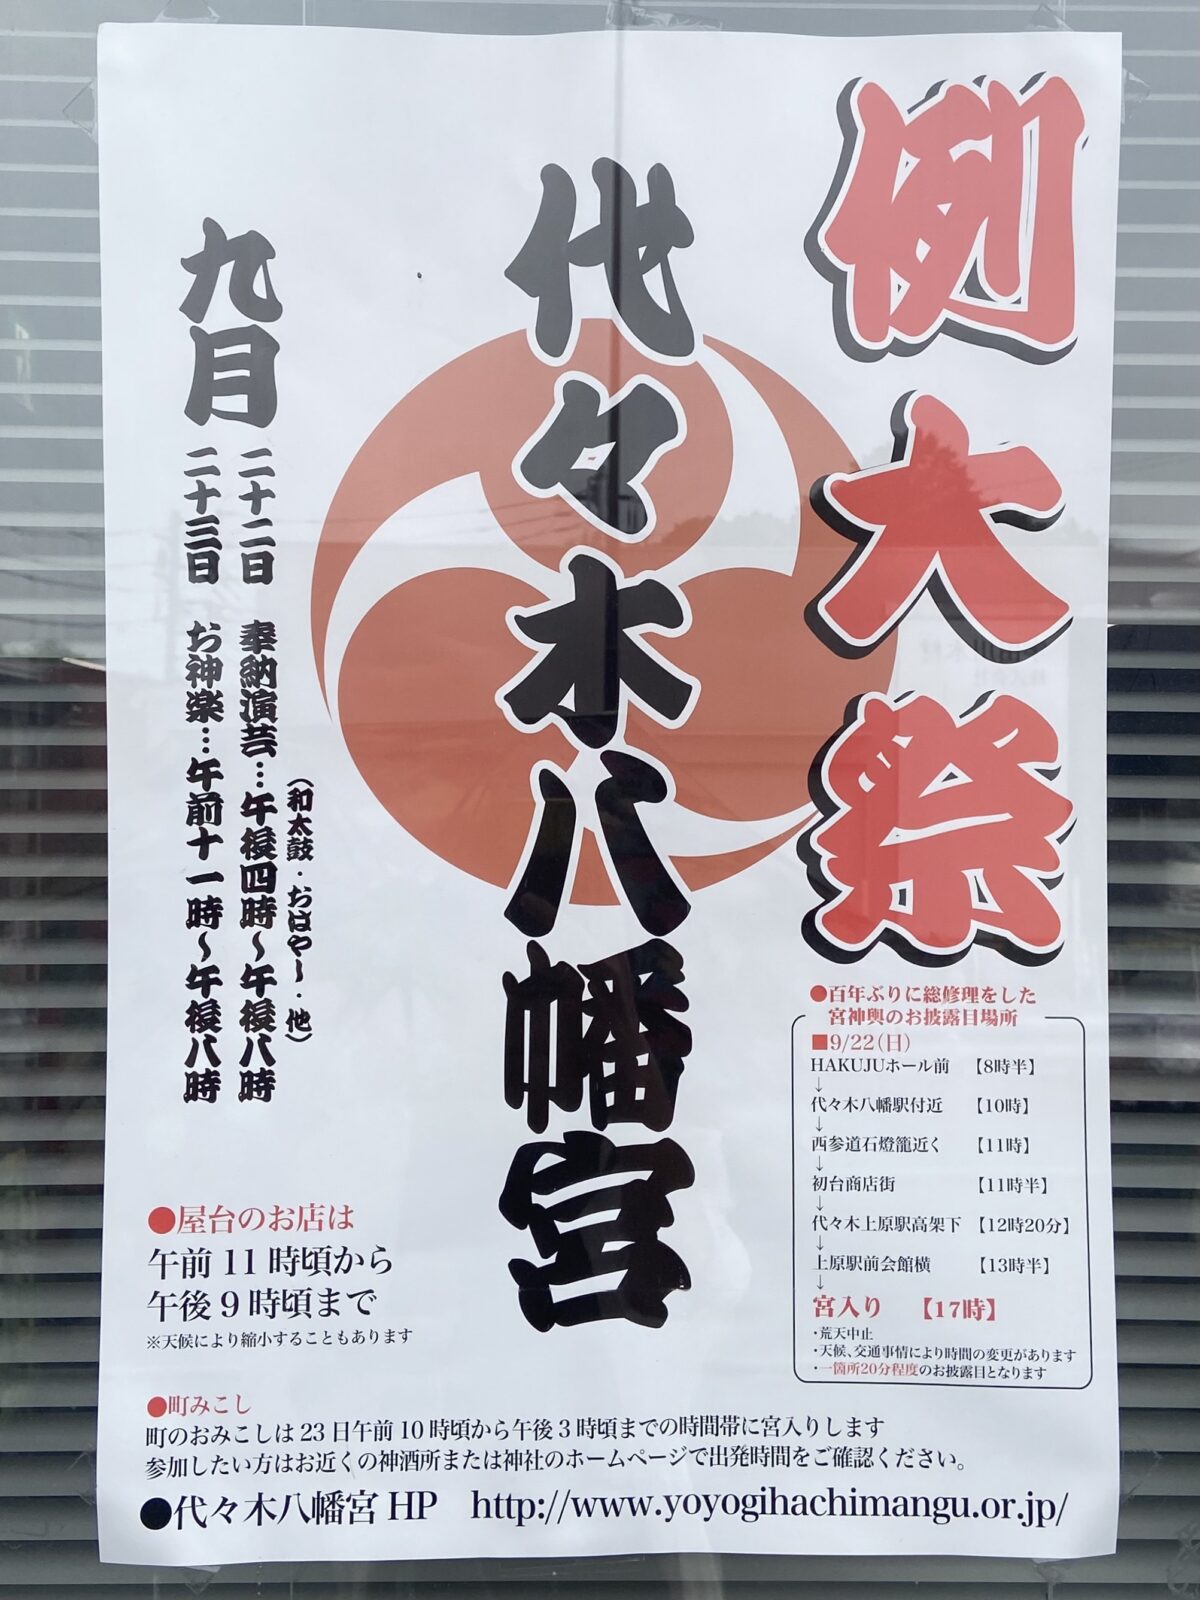 例大祭
代々木八幡宮
九月
二十二日 奉納演芸…午後四時～午後八時
(和太鼓・おはやし・他)
二十三日 お神楽…午前十一時～午後八時
●百年ぶりに総修理をした
宮神輿のお披露目場所
■9/22(日)
HAKUJUホール前 【8時半】
↓
代々木八幡駅付近 【10時】
↓
西参道石燈籠近く 【11時】
↓
初台商店街 【11時半】
↓
代々木上原駅高架下 【12時20分】
↓
上原駅前会館横 【13時半】
↓
宮入り 【17時】
・荒天中止
・天候、交通事情により時間の変更があります
・一箇所20分程度のお披露目となります
●屋台のお店は
午前 11 時頃から
午後 9 時頃まで
※天候により縮小することもあります
●町みこし
町のおみこしは 23 日午前 10 時頃から午後 3 時頃までの時間帯に宮入りします
参加したい方はお近くの神酒所または神社のホームページで出発時間をご確認ください。
●代々木八幡宮 HP http://www.yoyogihachimangu.or.jp/